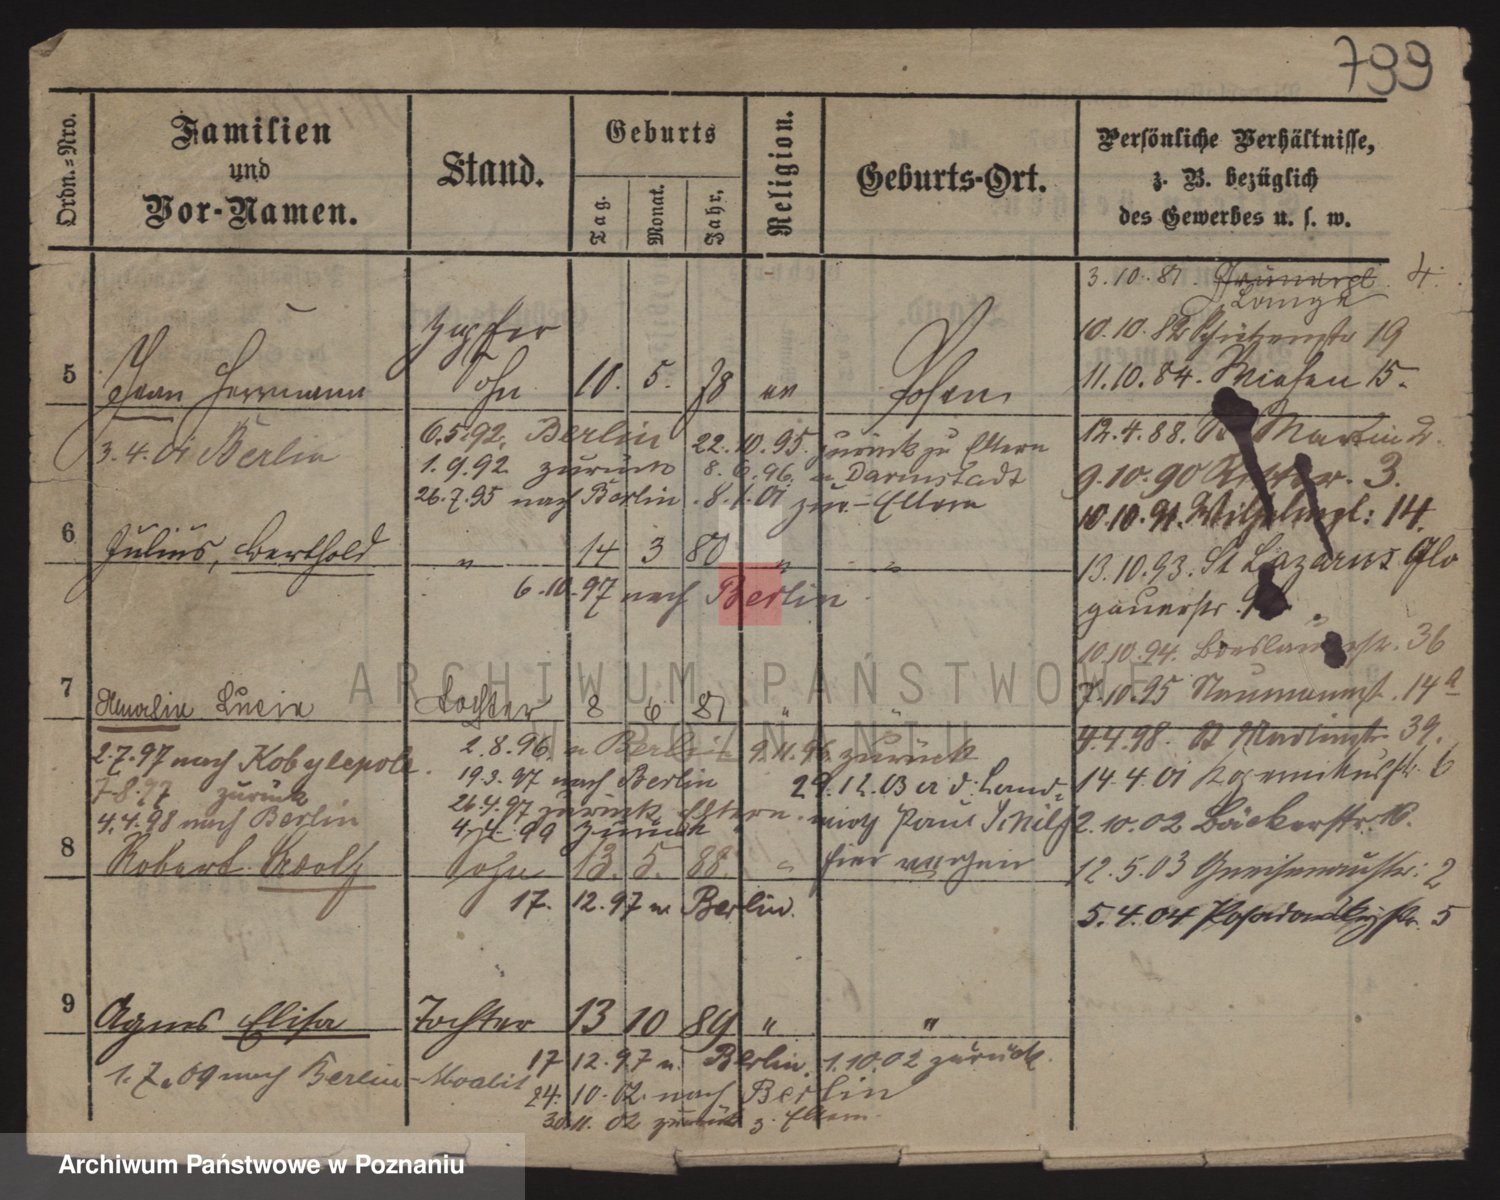 799
Ordn.=Nro.
Familien
und
Vor-Namen.
Stand.
Geburts
Tag.
Monat.
Jahr.
Religion.
Geburts-Ort.
Persönliche Verhältnisse,
z. B. bezüglich
des Gewerbes u. s. w.
3.10.81 4.
Lange
10.10.82 Schützenstr 19
11.10.84. Wiesen 15.
5 Herrmann Sohn 10. 5. 78 ev Posen
3.4.01 Berlin
6.5.92. Berlin 22.10.95. zurück zu Eltern
1.9.92 zurück 8.6.96. n. Darmstadt
26.7.95 nach Berlin. 8.1.01 zur. Eltern
12.4.88. St Martin 2.
9.10.90 Ritter. 3.
10.10.91. Wilhelmspl: 14.
6 Julius, Berthold " 14 3 80 " "
6.10.97 nach Berlin
13.10.93. St Lazarus Glo
gauerstr.
10.10.94. 36
7.10.95 Naumannst. 14a
ARCHIWUM PAŃSTWOWE
W POZNANIU
7 Amalie Lucie Tochter 8 6 81 "
2.7.97 nach Kobylepole.
7.8.97 zurück
4.4.98 nach Berlin
2.8.96. n Berlin 9.11.96 zurück
19.3.97 nach Berlin
26.4.97 zurück Eltern.
4.4.99 zurück
29.12.03 a d. Land-
Paul
hier
4.4.98. St Martinstr. 39.
14.4.01 Kopernikusstr. 6
2.10.02 Bäckerstr.
12.5.03 Gneisenaustr: 2
5.4.04 Posadowskystr. 5
8 Robert Adolf Sohn 13. 5. 88. "
17. 12.97 n. Berlin.
9 Agnes Elisa Tochter 13 10 89 " "
1.7.09 nach Berlin-Moabit
17 12.97 n. Berlin. 1.10.02 zurück.
24. 10.02. nach Berlin
30.11. 02 zurück z. Eltern.
Archiwum Państwowe w Poznaniu